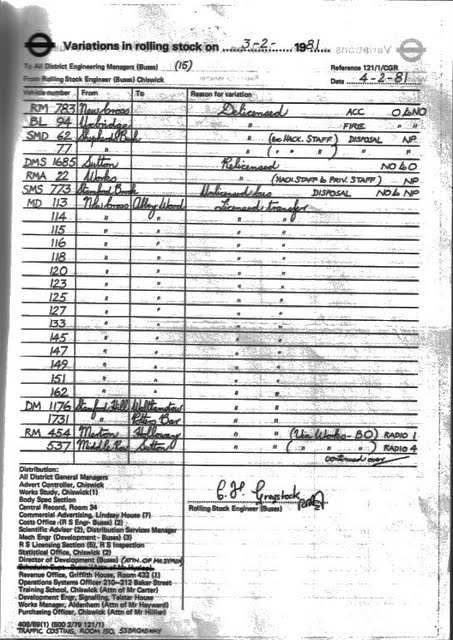 Variations in rolling stock on 3-2- 1981
To All District Engineering Managers (Buses) (15) Reference 121/1/CGR
From Rolling Stock Engineer (Buses) Chiswick Date 4-2-81
Vehicle number From To Reason for variation
RM 783 New Cross Delicensed ACC O to NO
BL 94 Uxbridge " FIRE " "
SMD 62 Shepherds Bush " (ex HACK. STAFF) DISPOSAL NP
77 " " ( " " ) " NP
DMS 1685 Sutton Relicensed NO to O
RMA 22 Works " (HACK STAFF & PRIV. STAFF) NP
SMS 773 Stamford Brook Unlicensed bus DISPOSAL NO to NP
MD 113 New Cross Abbey Wood Licensed transfer
114 " " " "
115 " " " "
116 " " " "
118 " " " "
120 " " " "
123 " " " "
125 " " " "
127 " " " "
133 " " " "
145 " " " "
147 " " " "
149 " " " "
151 " " " "
162 " " " "
DM 1176 Stamford Hill Walthamstow " "
1731 " Potters Bar " "
RM 454 Merton Holloway " " (Via Works - BO) RADIO 1
537 Middle Row Sutton " " ( " " " ) RADIO 4
continued over
Distribution:
All District General Managers
Advert Controller, Chiswick
Works Study, Chiswick(1)
Body Spec Section
Central Record, Room 34
Commercial Advertising, Lindsay House (7)
Costs Office (R S Engr- Buses) (2)
Scientific Adviser (2), Distribution Services Manager
Mech Engr (Development - Buses) (3)
R S Licensing Section (5), R S Inspection
Statistical Office, Chiswick (2)
Director of Development (Buses)
Revenue Office, Griffith House, Room 432
Operations Systems Officer 210-212 Baker Street
Training School, Chiswick (Attn of Mr Carter)
Development Engr, Signalling, Telstar House
Works Manager, Aldenham (Attn of Mr Hayward)
Purchasing Officer, Chiswick (Attn of Mr Hillier)
C H Greystock
Rolling Stock Engineer (Buses)
408/89(1) (500 2/79 121/1)
TRAFFIC COSTING, ROOM 150, 55 BROADWAY